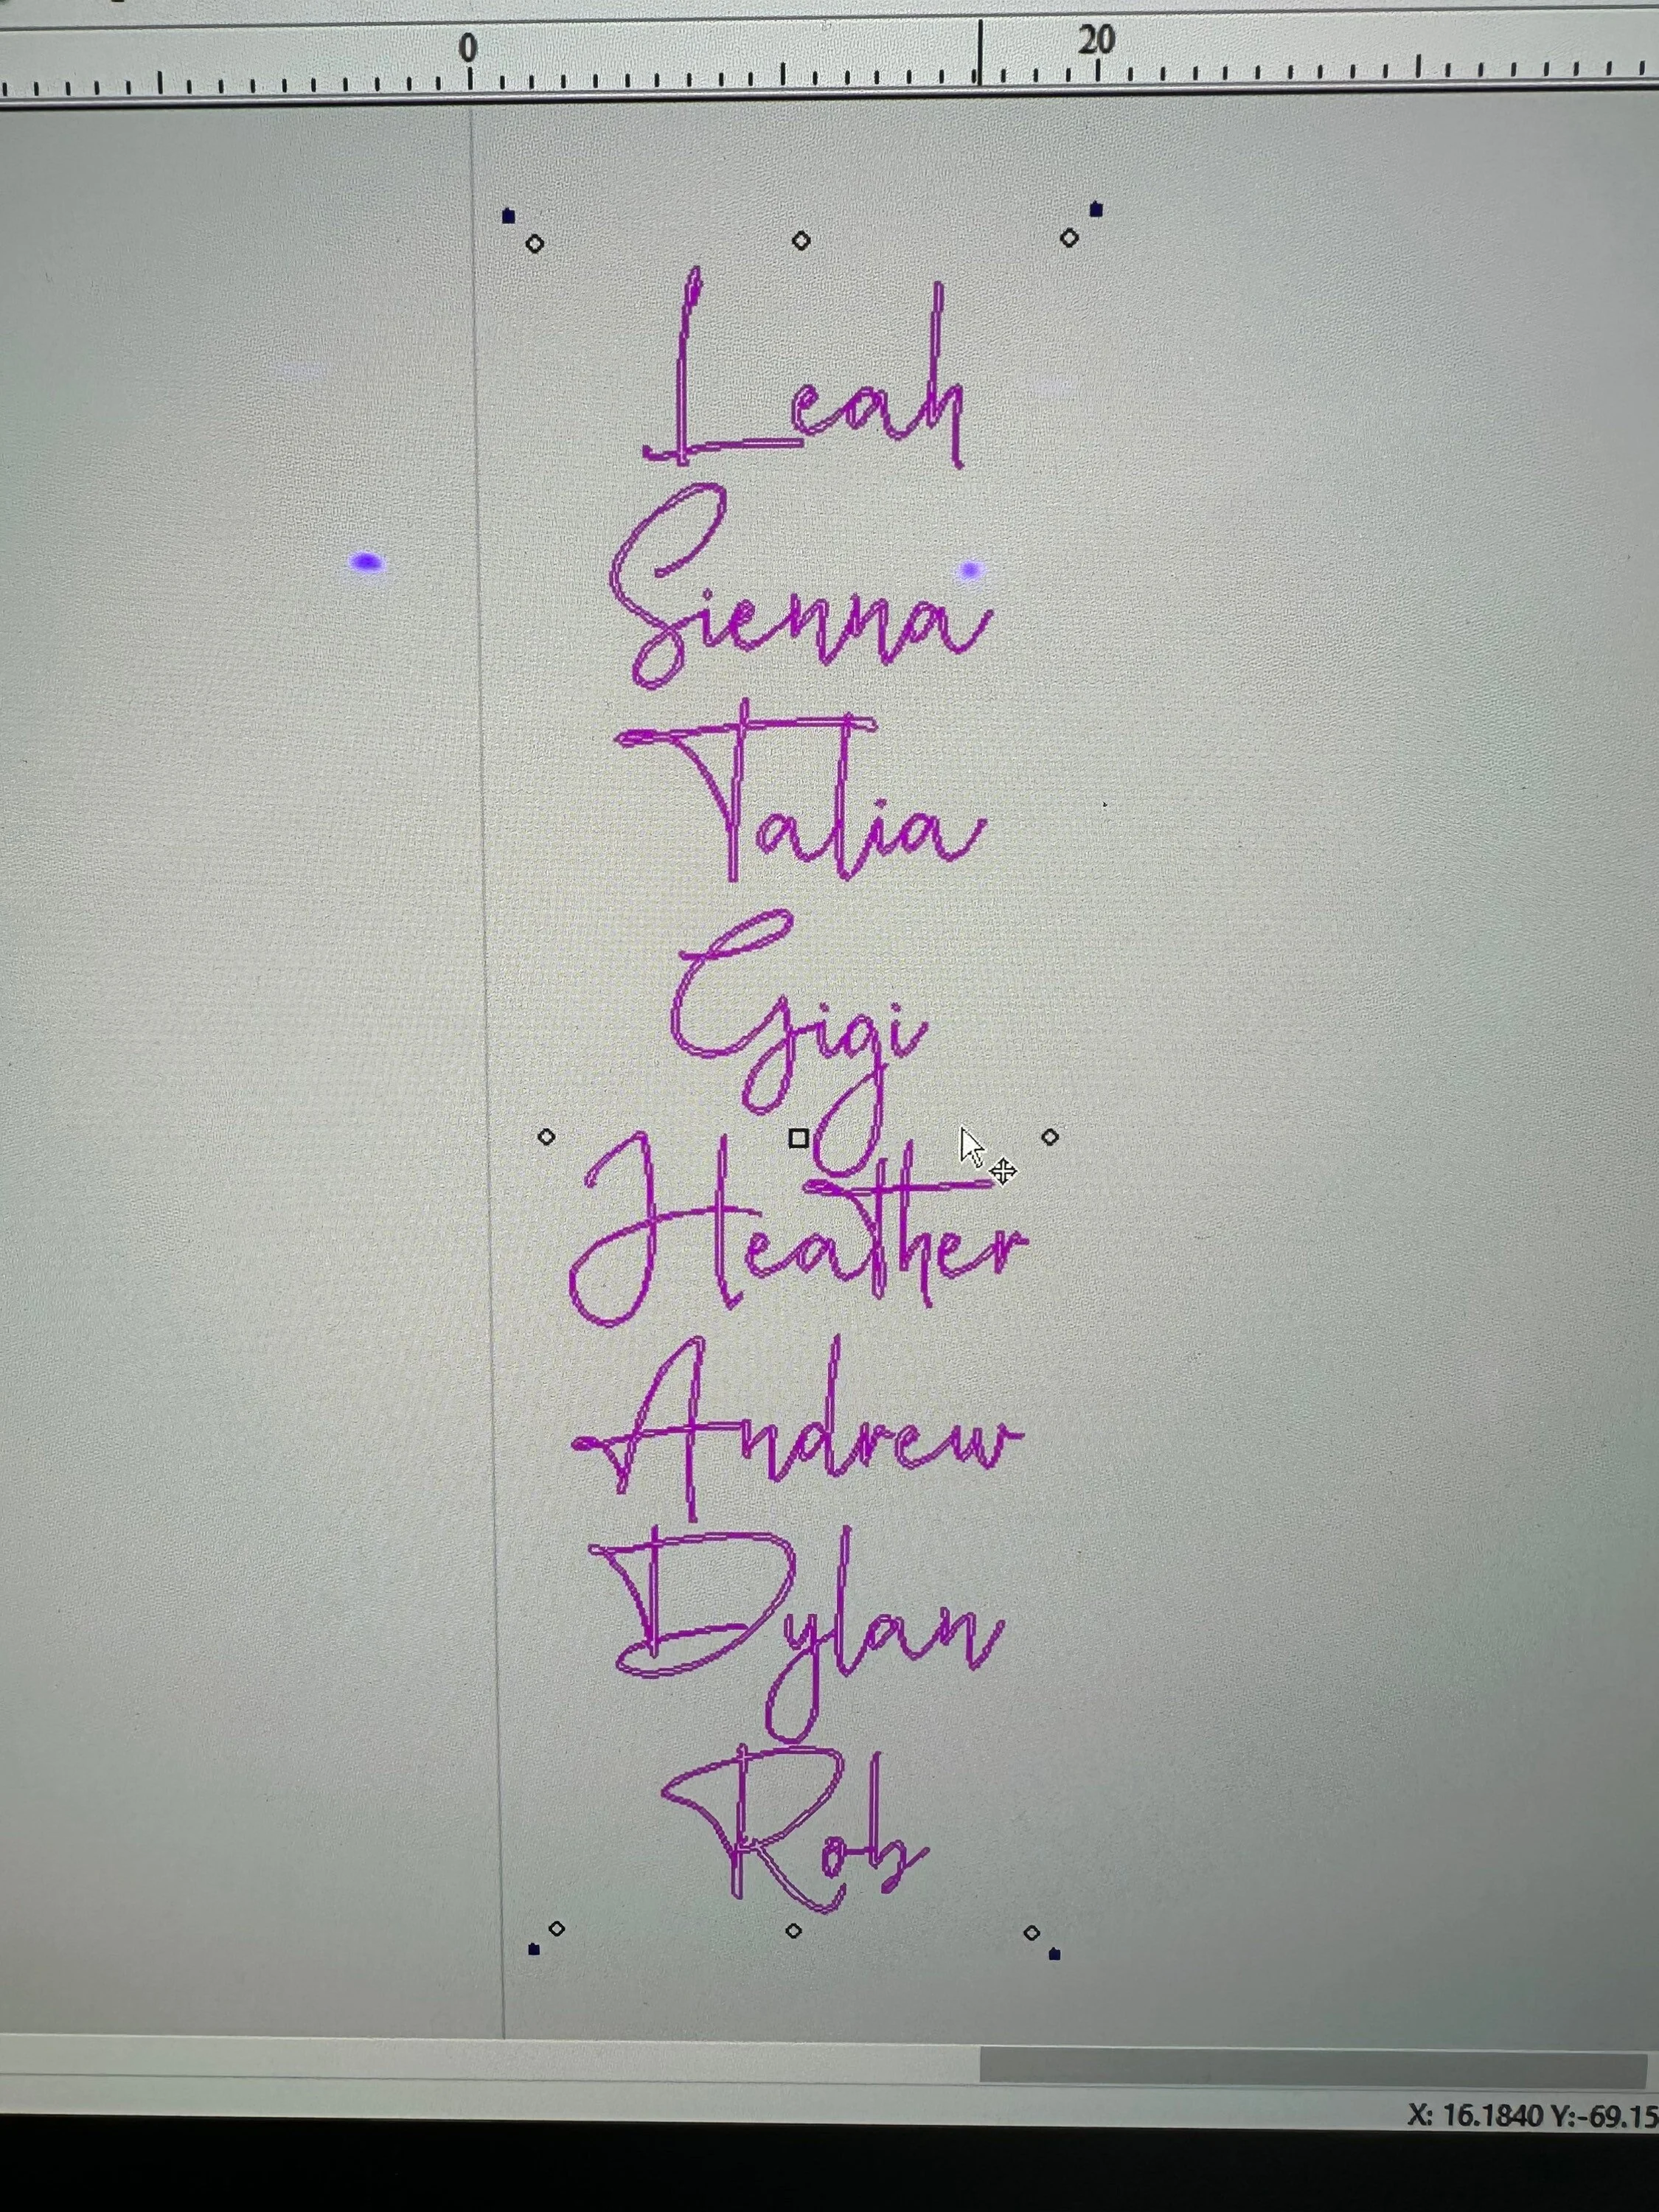 0 20
Leah
Sienna
Talia
Gigi
Heather
Andrew
Dylan
Rob
X: 16.1840 Y:-69.15